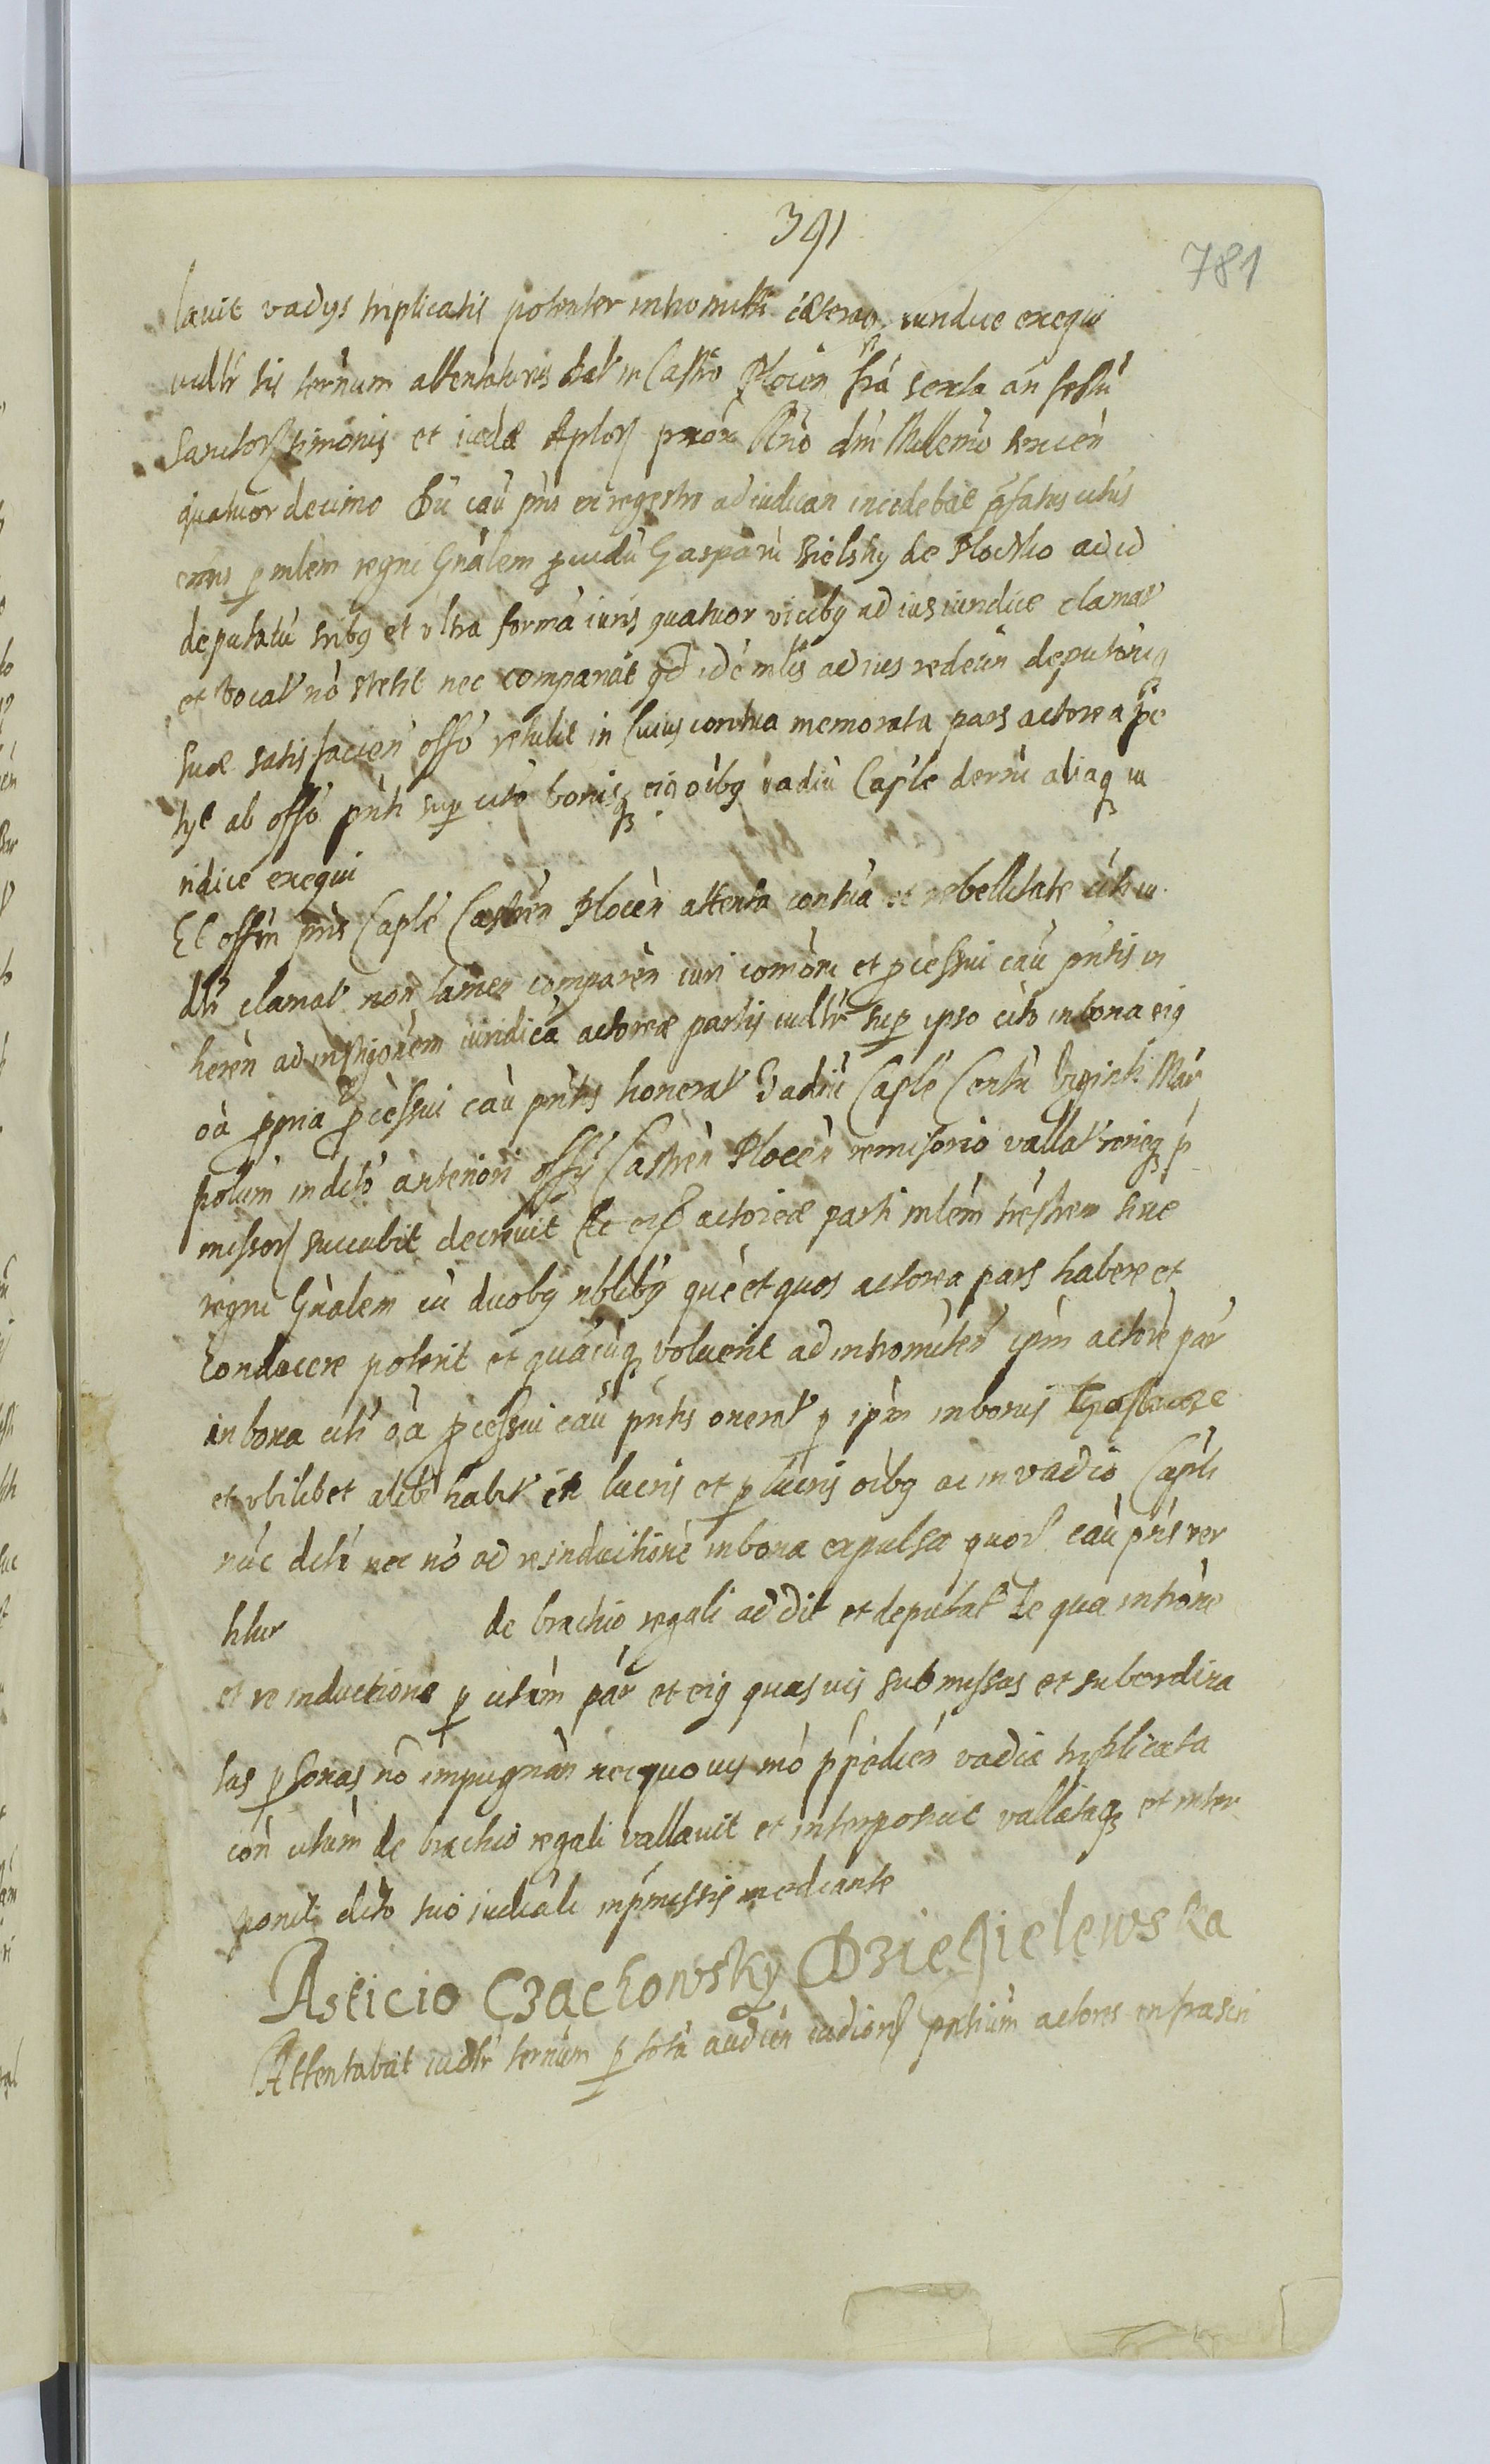 391
781
lavit vadys triplicatis potenter intromitti caeteraq iuridice exequi
iudlr sis ternum attentaturus Dat in Castro Plocen fra sexta an festu
Sanctor simonis et iudae Aplor pror Ano dni Millemo sexcen
quatuor decimo Du cau pns ex regestro adiudican incedebat pfatus citus
exns p mlem regni Gnalem puidu Gasparu Bielsky de Plocko ad id
deputatu tribq et vltra forma iuris quatuor vicibq ad ius iuridice clamat
et vocat no stetit nec comparuit qd ide mlis ad ius redeun deputoni
suae satisfacien offo retulit in Cuius contua memorata pars actorea pe
tyt ab offo pnti super cito bonisq eiq oibq vadiu Caple derni aliaq iu
ridice exequi
Et offm pns Caple Castren Plocen attenta contua et rebellitate citi iu
dlr clamat non tamen comparen iuri comoni et pcessui cau pntis in
heren ad instigonem iuridica actoreae partis iudlr super ipso cito in bona eiq
oa ppria pcessui cau pntis honerat Vadiu Caple Centu viginti Mar
polum in dcto anteriori offy Castren Plocen remisorio vallat reneq p
missor succubit decrevit Et actoreae parti mlem trestrem sive
regni Gnalem cu duobq nblibq que et quos actorea pars habere et
Conducere poterit et quacuq voluerit ad intromitten ipm actore par
in bona citi oa pcessui cau pntis onerat p ipm in bonis
et vbilibet alibi habit in lucris et plucris oibq ac in vadio Capli
nuc dcti nec no ad reinductione in bona expulsa quor cau pns ver
titur de brachio regali addit et deputat De qua introne
et reinductione p citum par et eiq quasuis submissas et subordina
tas psonas no impugnan nec quo uis mo ppedien vadia triplicata
con citum de brachio regali vallavit et interposuit vallataq et inter
ponit dcto suo iudiali inpmissis mediante
Asticio Czachowsky Dziegielewska
Attentabat iudlr ternum p tota audien iudior pntium actores infrascri